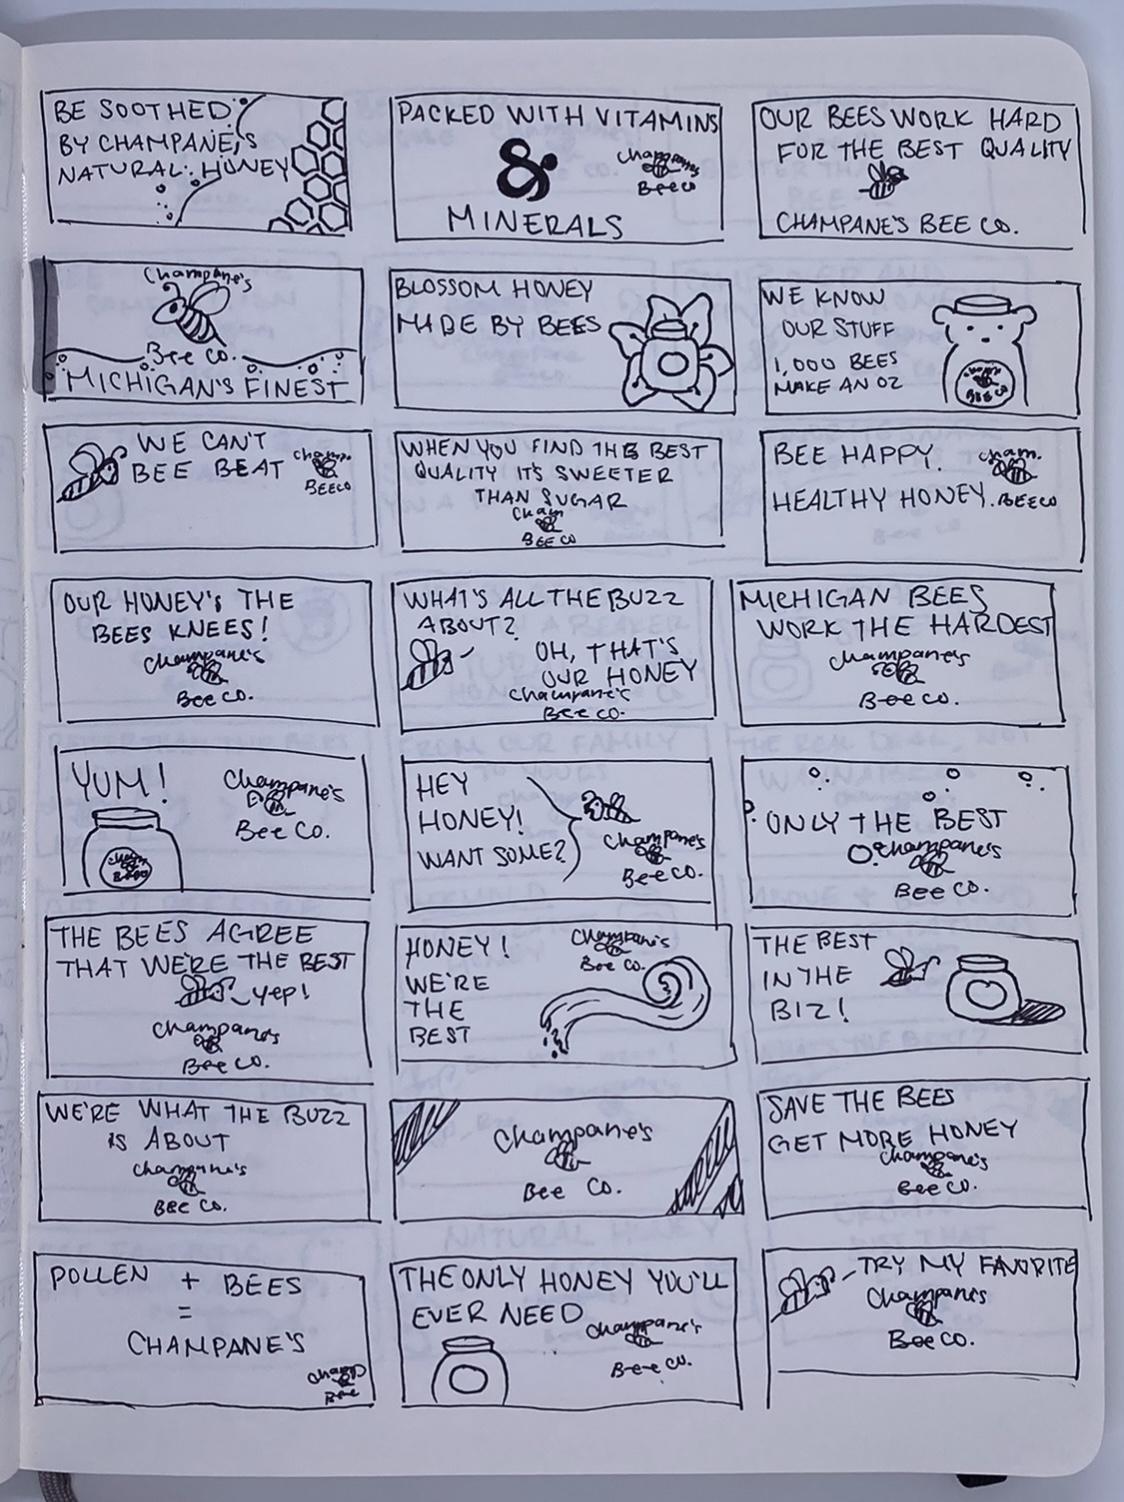 BE SOOTHED
BY CHAMPANE'S
NATURAL HONEY
PACKED WITH VITAMINS
&
MINERALS
Champane's
Bee co
OUR BEES WORK HARD
FOR THE BEST QUALITY
CHAMPANE'S BEE CO.
Champane's
Bee co.
MICHIGAN'S FINEST
BLOSSOM HONEY
MADE BY BEES
WE KNOW
OUR STUFF
1,000 BEES
MAKE AN OZ
BEE CO
WE CAN'T
BEE BEAT
champ.
BEECO
WHEN YOU FIND THE BEST
QUALITY IT'S SWEETER
THAN SUGAR
Cham
BEE CO
BEE HAPPY.
HEALTHY HONEY.
Cham.
BEECO
OUR HONEY'S THE
BEES KNEES!
Champane's
Bee Co.
WHAT'S ALL THE BUZZ
ABOUT?
OH, THAT'S
OUR HONEY
Champane's
Bee co.
MICHIGAN BEES
WORK THE HARDEST
Champane's
Bee co.
YUM!
Champane's
Bee Co.
HEY
HONEY!
WANT SOME?
Champane's
Bee co.
ONLY THE BEST
Champane's
Bee co.
THE BEES AGREE
THAT WE'RE THE BEST
Yep!
Champane's
Bee Co.
HONEY!
WE'RE
THE
BEST
Champane's
Bee Co.
THE BEST
IN THE
BIZ!
WE'RE WHAT THE BUZZ
IS ABOUT
Champane's
Bee Co.
Champane's
Bee Co.
SAVE THE BEES
GET MORE HONEY
Champane's
Bee Co.
POLLEN + BEES
=
CHAMPANE'S
Champ
Bee
THE ONLY HONEY YOU'LL
EVER NEED
Champane's
Bee co.
TRY MY FAVORITE
Champane's
Bee Co.